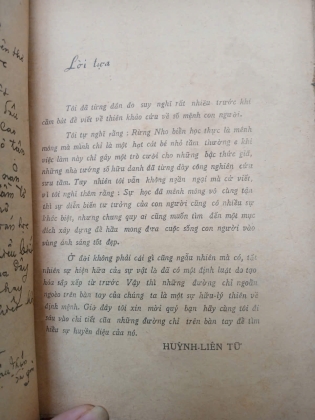 Lời tựa
Tôi đã từng đắn đo suy nghĩ rất nhiều trước khi
cầm bút để viết về thiên khảo cứu về số mệnh con người.
Tôi tự nghĩ rằng : Rừng Nho biển học thực là mênh
mông mà mình chỉ là một hạt cát bé nhỏ tầm thường e khi
việc làm này chỉ gây một trò cười cho những bậc thức giả,
những nhà tướng số hữu danh đã từng dày công nghiên cứu
sưu tầm. Tuy nhiên tôi vẫn không ngần ngại mà cứ viết,
vì tôi nghĩ thầm rằng ; Sự học đã mênh mông vô cùng tận
thì sự diễn biến tư tưởng của con người cũng có nhiều sự
khác biệt, nhưng chung quy ai cũng muốn tìm đến một mục
đích xây dựng để hầu mong đưa cuộc sống con người vào
vùng ánh sáng tốt đẹp.
Ở đời không phải cái gì cũng ngẫu nhiên mà có, tất
nhiên sự hiện hữu của sự vật là đã có một định luật do tạo
hóa sắp xếp từ trước. Vậy thì những đường chỉ ngoằn
ngoèo trên bàn tay của chúng ta là một sự hữu-lý thiên về
định mệnh. Giờ đây tôi xin mời quý bạn hãy cùng tôi đi
sâu vào chi tiết của những đường chỉ trên bàn tay để tìm
hiểu sự huyền diệu của nó.
HUỲNH-LIÊN TỬ